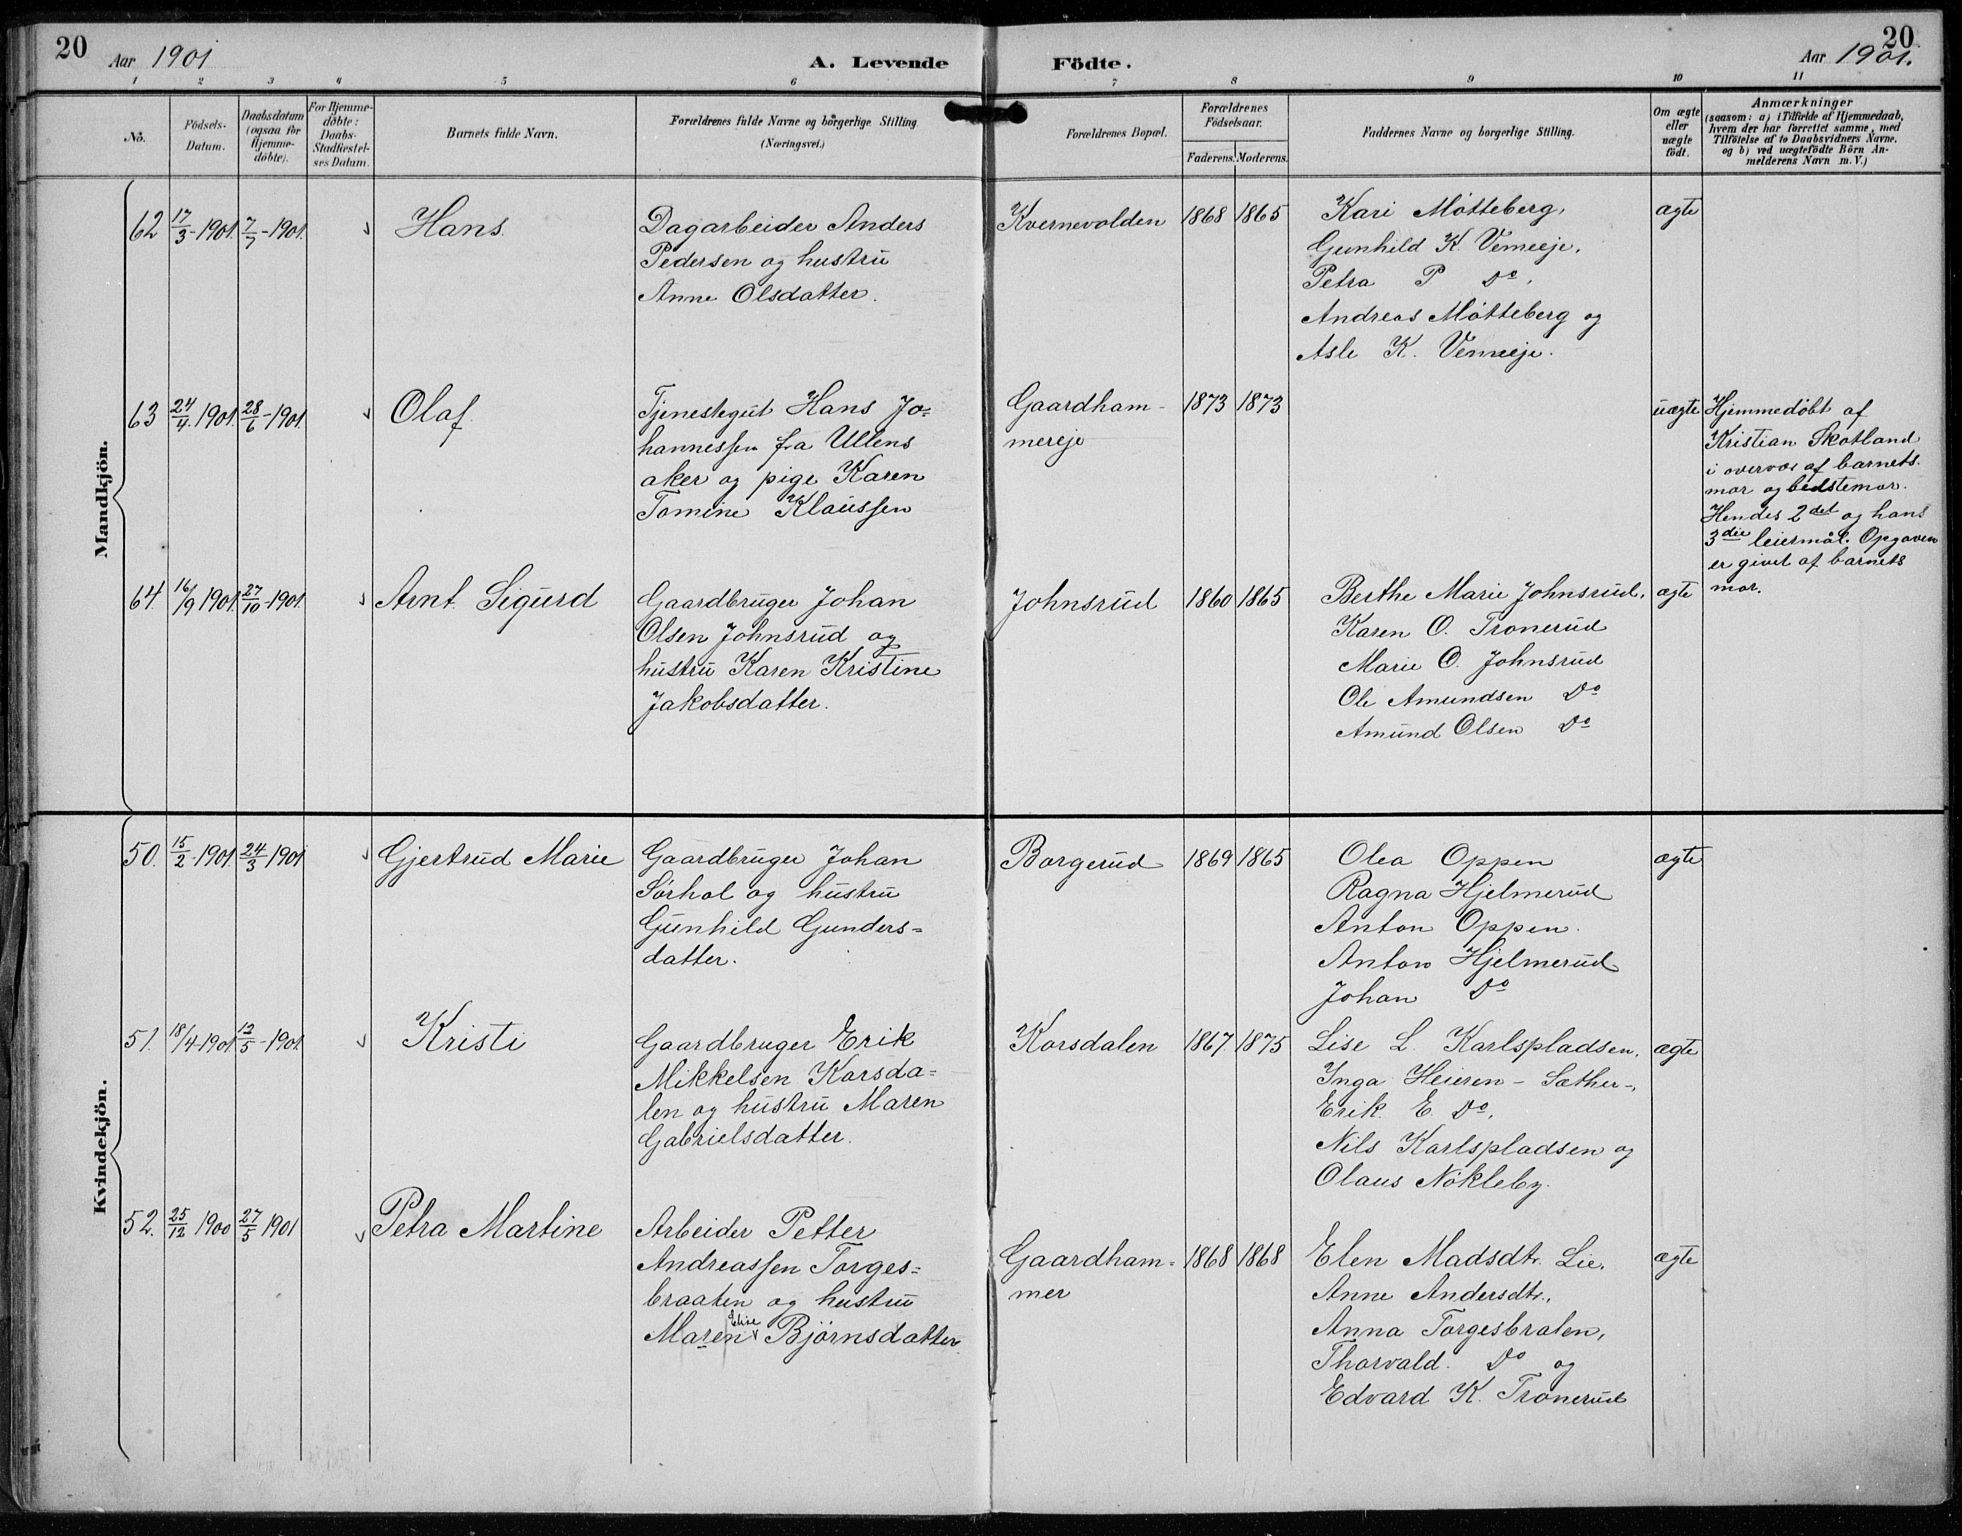 20
Aar 1901
A. Levende
Födte.
Aar 1901.
20
1 2 3 4 5 6 7 8 9 10 11
No.
Födsels-
Datum.
Daabsdatum
(ogsaa for
Hjemme-
döbte).
For Hjemme-
döbte:
Daabs-
Stadfæstel-
ses Datum.
Barnets fulde Navn.
Forældrenes fulde Navne og borgerlige Stilling
(Næringsvei.)
Forældrenes Bopæl.
Forældrenes
Födselsaar.
Faderens. Moderens.
Faddernes Navne og borgerlige Stilling.
Om ægte
eller
uægte
födt.
Anmærkninger
(saasom: a) i Tilfælde af Hjemmedaab,
hvem der har forrettet samme, med
Tilföielse af to Daabsvidners Navne.
og b) ved uægtefödte Börn An-
melderens Navn m. V.)
Mandkjön.
62 17/3-1901. 7/7-1901. Hans.
Dagarbeider Anders
Pedersen og hustru
Anne Olsdatter.
Kvernevolden 1868 1865
Kari Møtteberg,
Gunhild K. Vemeeje,
Petra P Do,
Andreas Møtteberg og
Asle K. Vemeeje.
ægte
63 24/4. 1901. 28/6-1901. Olaf.
Tjenestegut Hans Jo-
hannessen fra Ullens
aker og pige Karen
Tomine Klaussen
Gaardham-
mereje
1873 1873
uægte
Hjemmedøbt af
Kristian Skotland
i overvær af barnets
mor og bedstemor.
Hendes 2det og hans
3die leiermål. Opgaven
er givet af barnets
mor.
64. 16/9 1901. 27/10-1901. Arnt Sigurd
Gaardbruger Johan
Olsen Johnsrud og
hustru Karen Kristine
Jakobsdatter.
Johnsrud 1860 1865
Berthe Marie Johnsrud,
Karen O. Tronerud
Marie O. Johnsrud
Ole Amundsen Do
Amund Olsen Do
ægte
Kvindekjön.
50. 15/2-1901. 24/3 1901 Gjertrud Marie
Gaardbruger Johan
Sørhol og hustru
Gunhild Gunders-
datter.
Borgerud 1869 1865
Olea Oppen
Ragna Hjelmerud
Anton Oppen.
Anton Hjelmerud
Johan Do
ægte
51. 18/4-1901 12/5-1901. Kristi
Gaardbruger Erik
Mikkelsen Korsda-
len og hustru Maren
Gabrielsdatter.
Korsdalen 1867. 1875
Lise L. Karlspladsen,
Inga Heieren - Sæther-,
Erik E. Do,
Nils Karlspladsen og
Olaus Nökleby.
ægte
52. 25/12 1900 27/5 1901 Petra Martine
Arbeider Petter
Andreassen Torges-
braaten og hustru
Maren Elise Bjørnsdatter
Gaardham-
mer
1868 1868
Elen Madsdt. Lie,
Anne Andersdtr.,
Anna Torgesbraten,
Thorvald. Do og
Edvard K. Tronerud
ægte